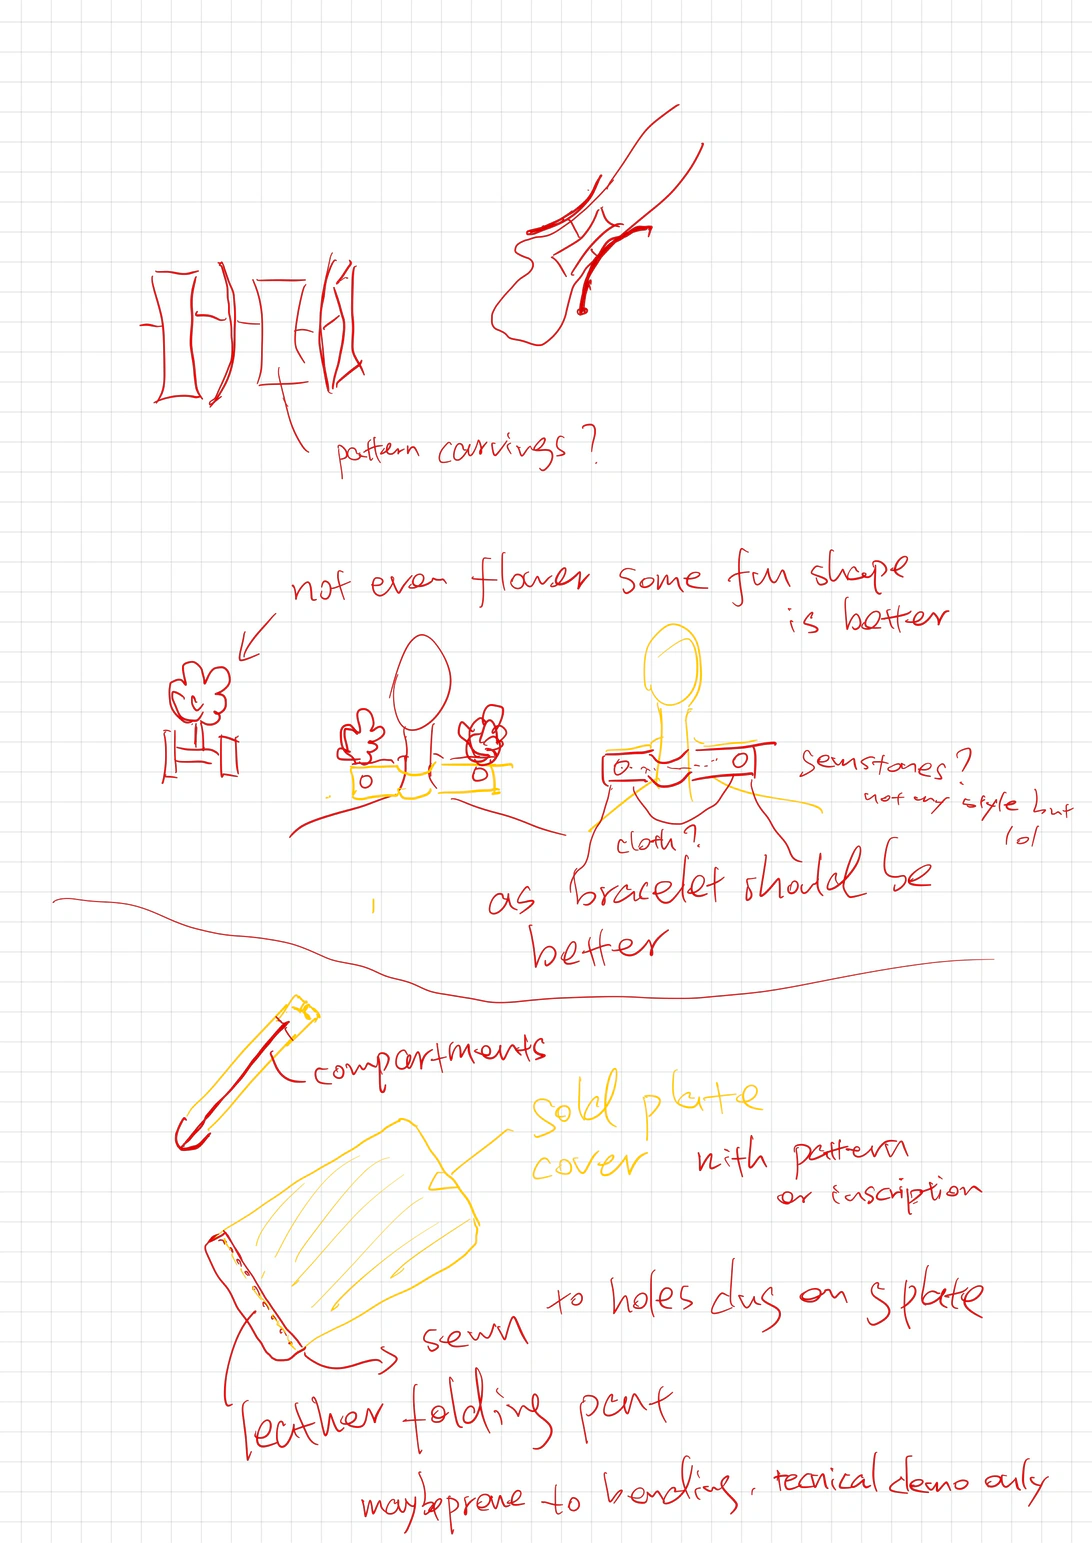 pattern carvings?
not even flower some fun shape
is better
gemstones?
not my style but
lol
cloth?
as bracelet should be
better
compartments
gold plate
cover with pattern
or inscription
sewn to holes dug on g plate
leather folding part
maybe prone to bending. tecnical demo only